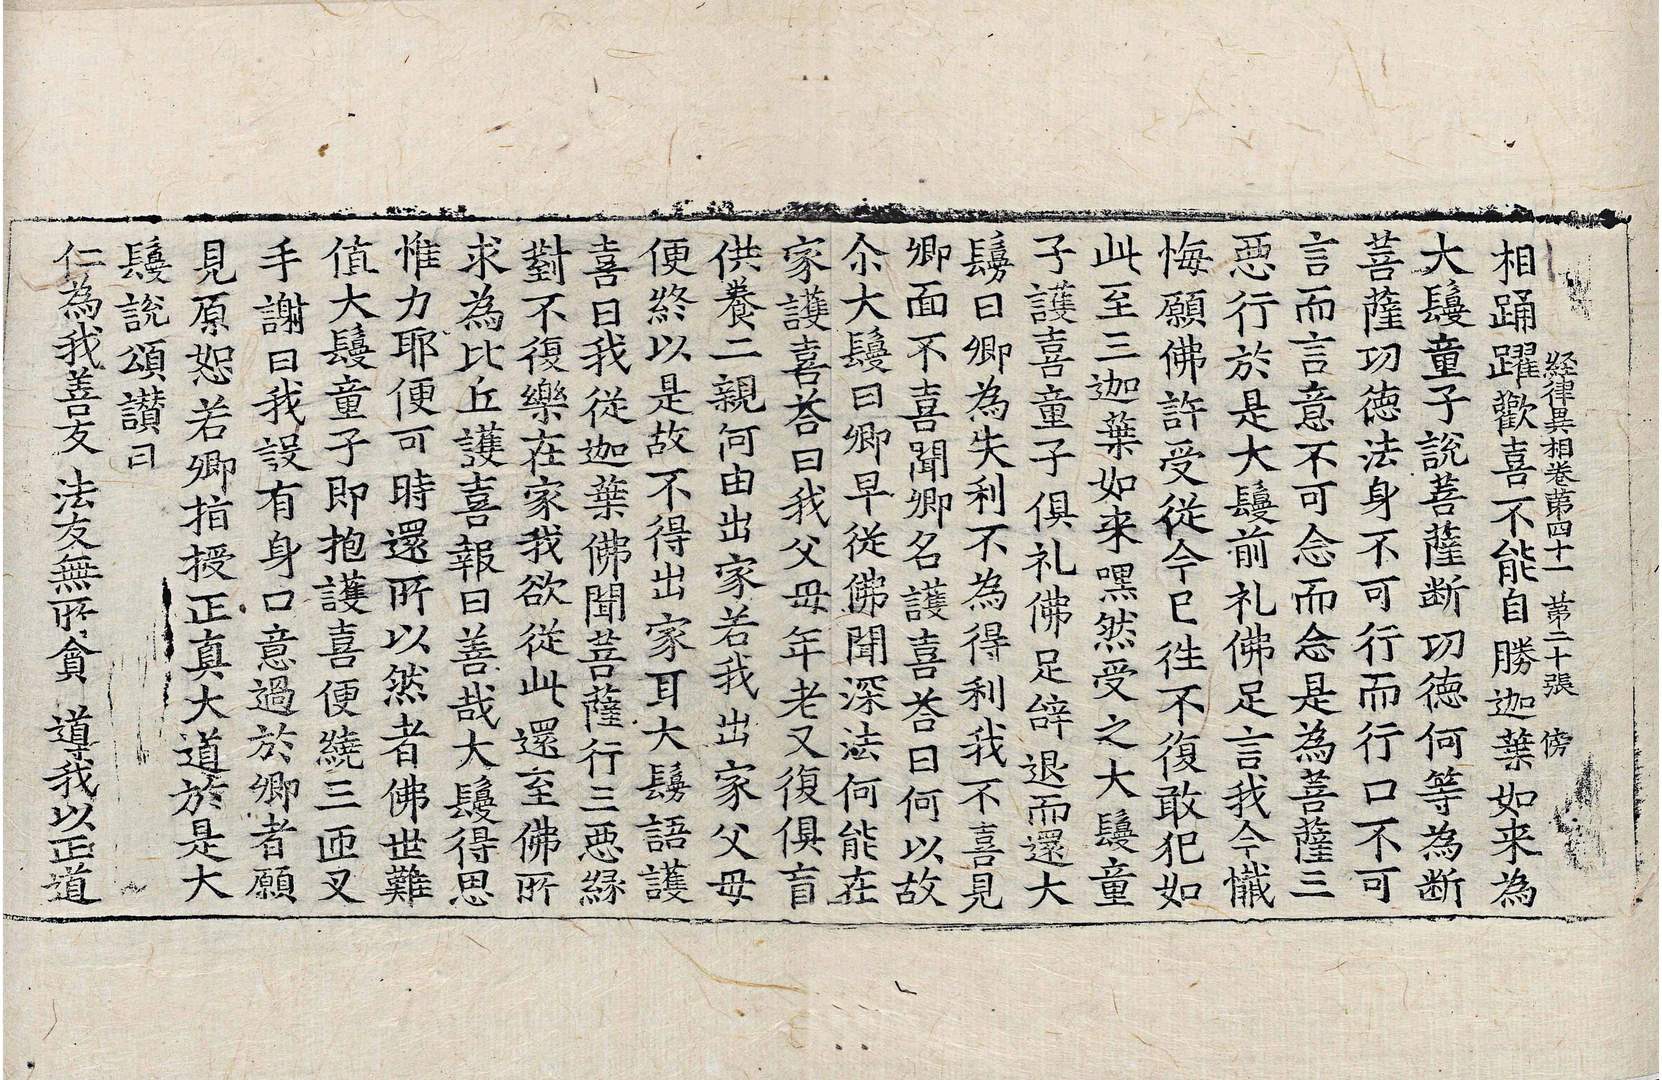 経律異相卷第四十一　第二十張　傍
相踊躍歡喜不能自勝迦葉如来為
大鬘童子說菩薩断功徳何等為断
菩薩功徳法身不可行而行口不可
言而言意不可念而念是為菩薩三
惡行於是大鬘前礼佛足言我今懺
悔願佛許受從今已往不復敢犯如
此至三迦葉如来嘿然受之大鬘童
子護喜童子俱礼佛足辝退而還大
鬘曰卿為失利不為得利我不喜見
卿面不喜聞卿名護喜荅曰何以故
尒大鬘曰卿早從佛聞深法何能在
家護喜荅曰我父母年老又復俱盲
供養二親何由出家若我出家父母
便終以是故不得出家耳大鬘語護
喜曰我從迦葉佛聞菩薩行三惡縁
對不復樂在家我欲從此還至佛所
求為比丘護喜報曰善哉大鬘得思
惟力耶便可時還所以然者佛世難
值大鬘童子即抱護喜便繞三匝叉
手謝曰我設有身口意過於卿者願
見原恕若卿指授正真大道於是大
鬘說頌讃曰
仁為我善友　法友無所貪　導我以正道